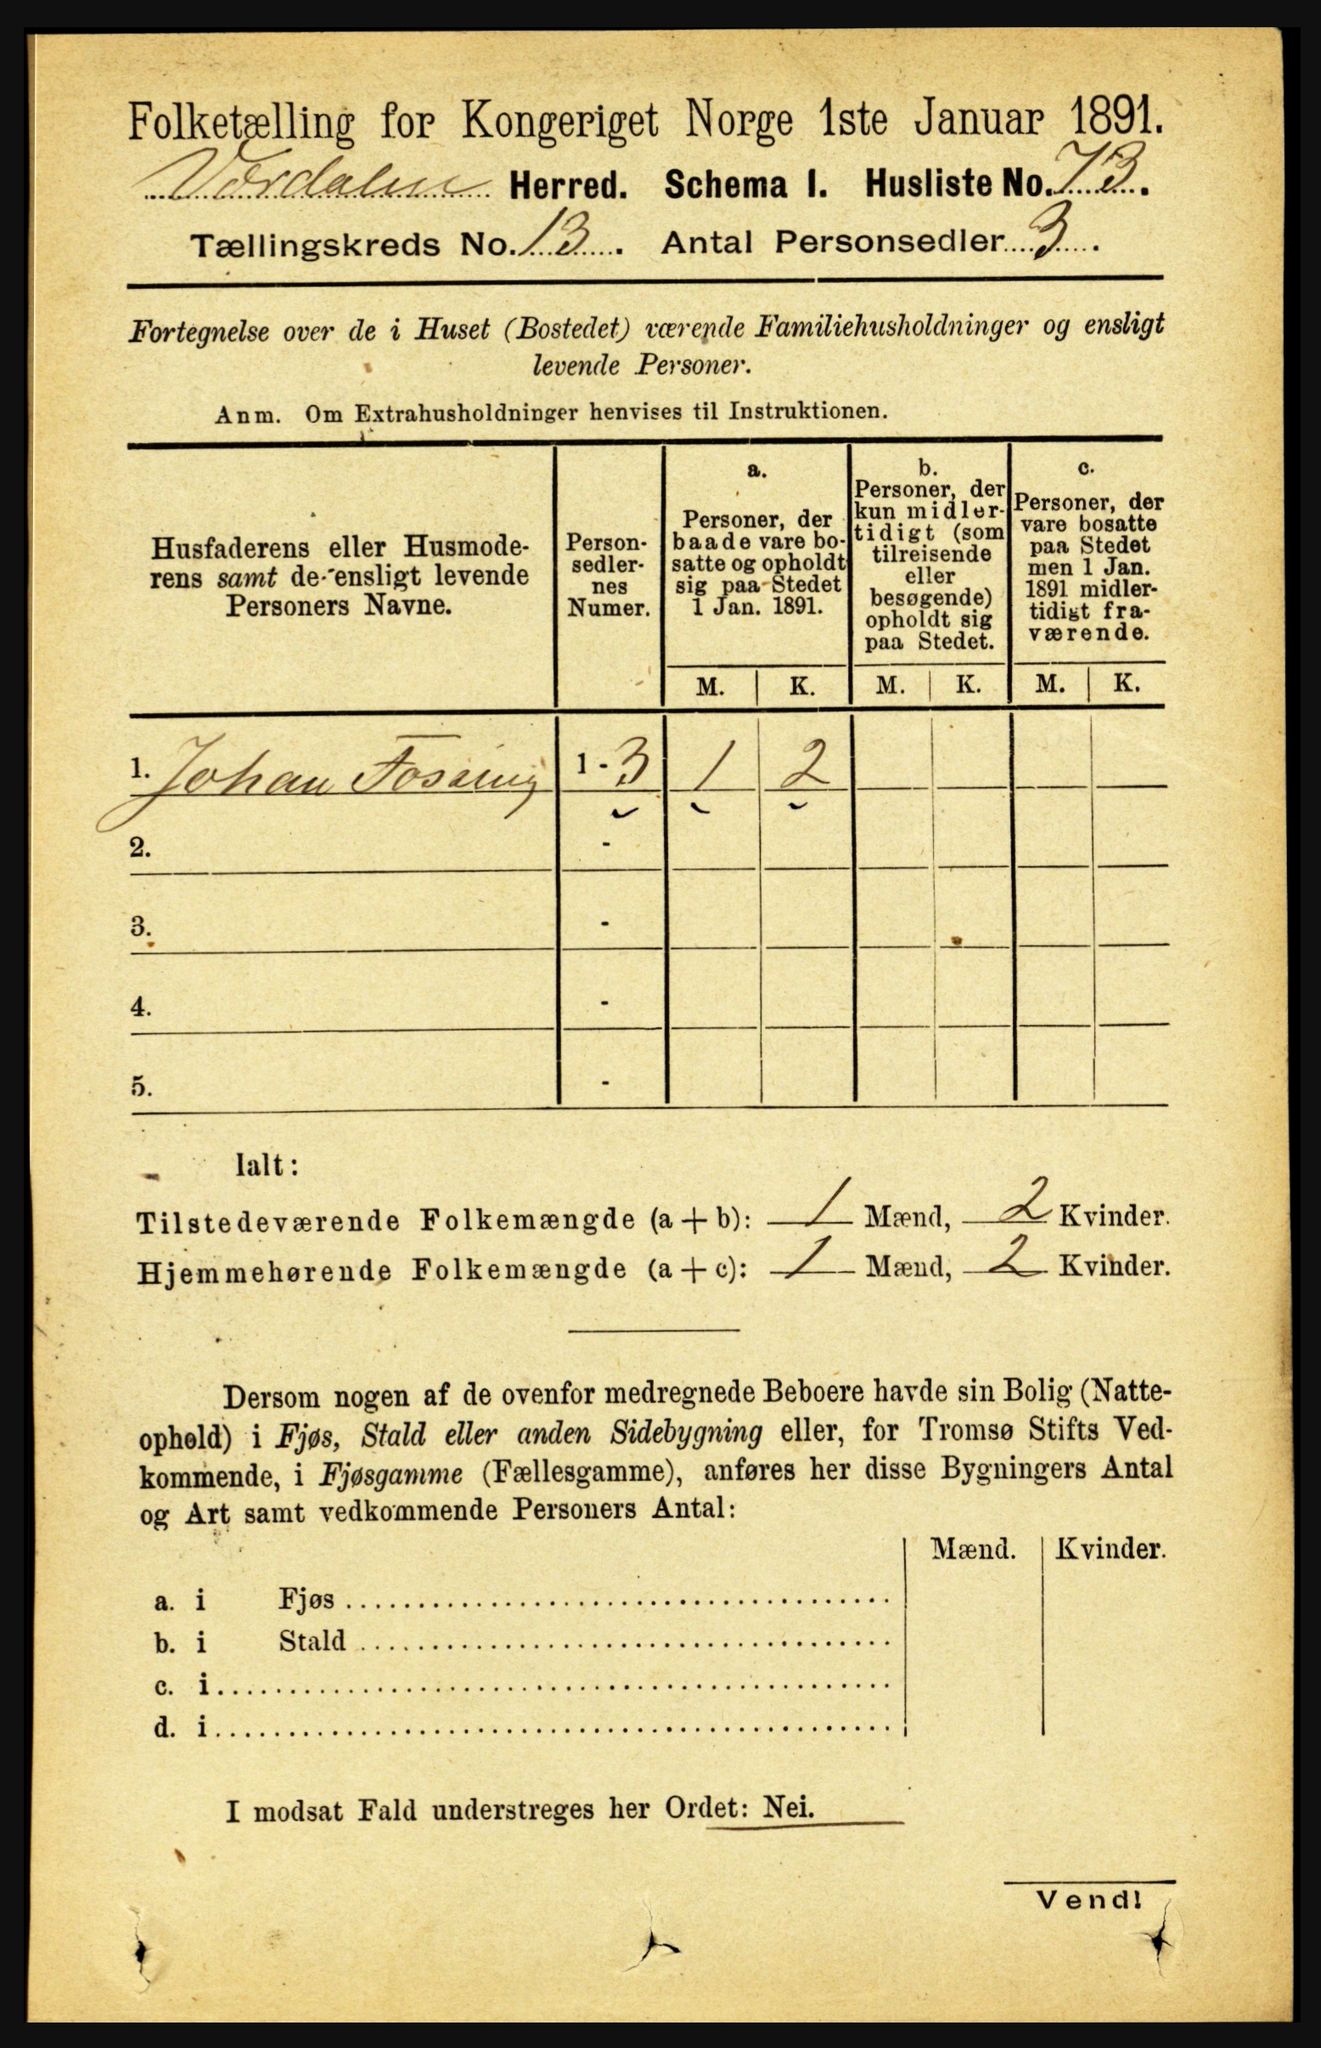 Folketælling for Kongeriget Norge 1ste Januar 1891.
Værdalen Herred. Schema I. Husliste No. 73.
Tællingskreds No. 13. Antal Personsedler 3.
Fortegnelse over de i Huset (Bostedet) værende Familiehusholdninger og ensligt
levende Personer.
Anm. Om Extrahusholdninger henvises til Instruktionen.
Husfaderens eller Husmode-
rens samt de ensligt levende
Personers Navne.
Person-
sedler-
nes
Numer.
a.
Personer, der
baade vare bo-
satte og opholdt
sig paa Stedet
1 Jan. 1891.
M. K.
b.
Personer, der
kun midler-
tidigt (som
tilreisende
eller
besøgende)
opholdt sig
paa Stedet.
M. K.
c.
Personer, der
vare bosatte
paa Stedet
men 1 Jan.
1891 midler-
tidigt fra-
værende.
M. K.
1. Johan 1 - 3 1 2
2. -
3. -
4. -
5. -
Ialt:
Tilstedeværende Folkemængde (a + b): 1 Mænd, 2 Kvinder.
Hjemmehørende Folkemængde (a + c): 1 Mænd, 2 Kvinder.
Dersom nogen af de ovenfor medregnede Beboere havde sin Bolig (Natte-
ophold) i Fjøs, Stald eller anden Sidebygning eller, for Tromsø Stifts Ved-
kommende, i Fjøsgamme (Fællesgamme), anføres her disse Bygningers Antal
og Art samt vedkommende Personers Antal:
Mænd. Kvinder.
a. i Fjøs
b. i Stald
c. i
d. i
I modsat Fald understreges her Ordet: Nei.
Vend!